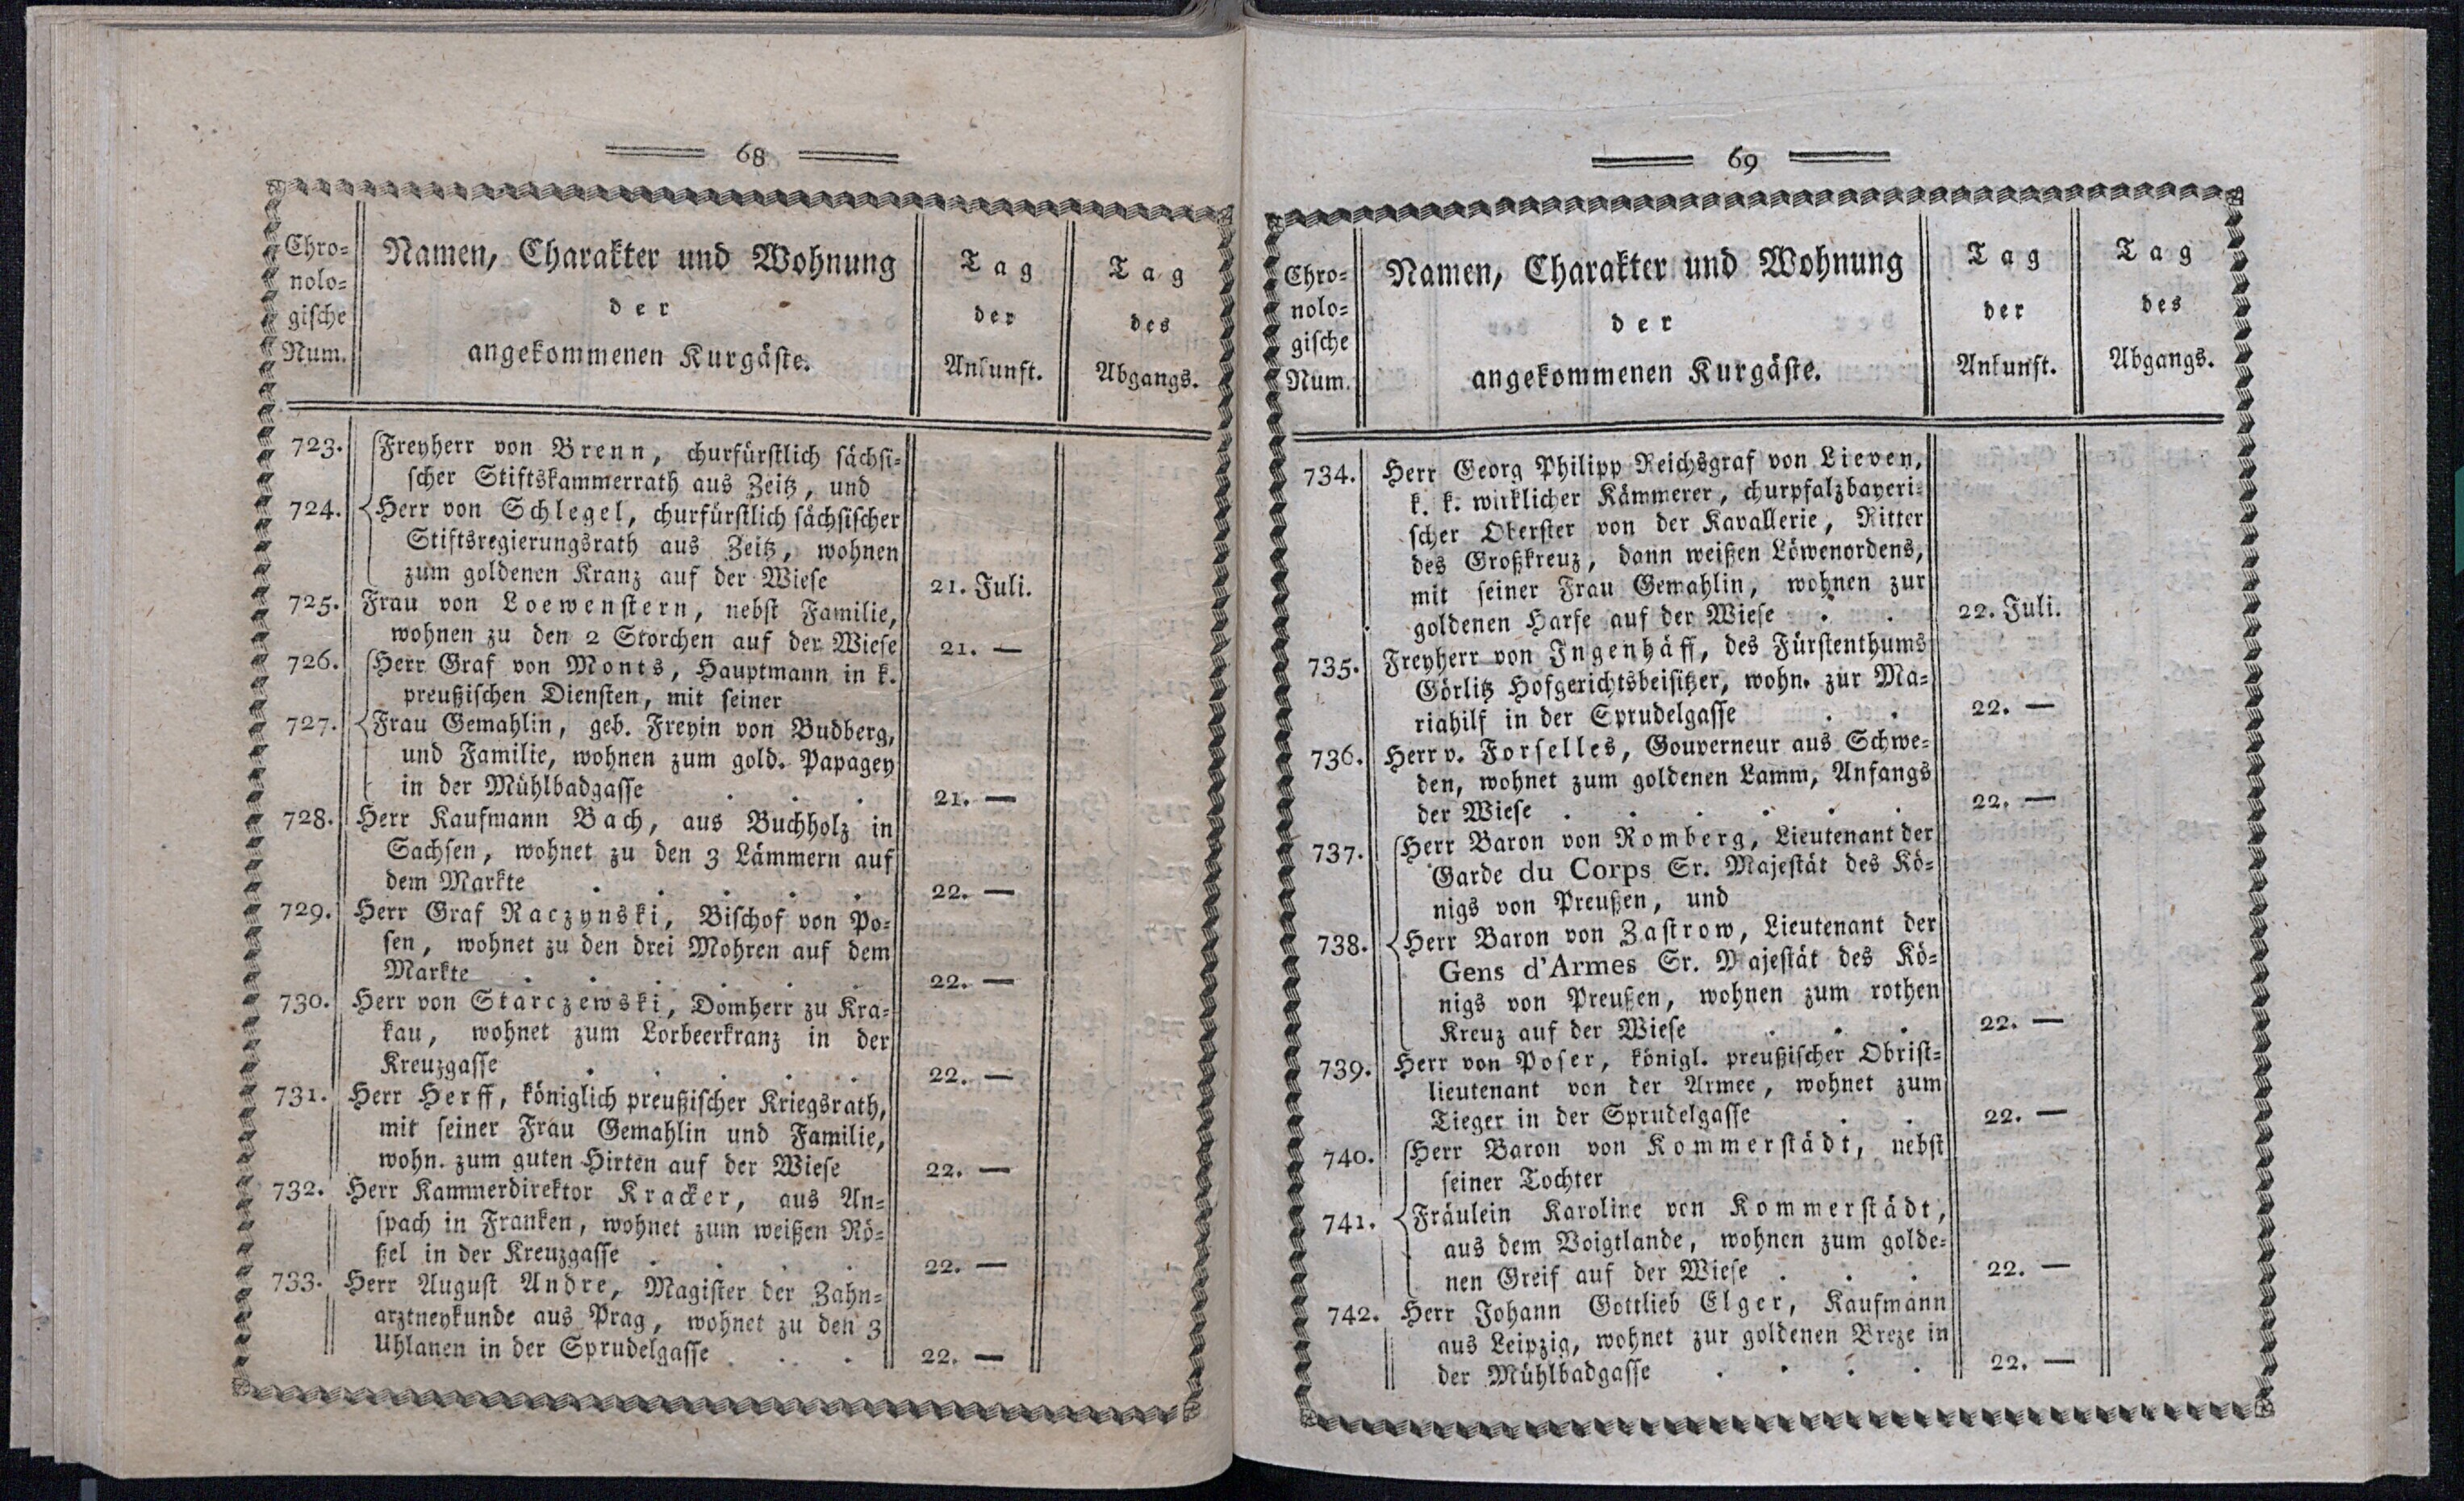 68
Chro-
nolo-
gische
Num.
Namen, Charakter und Wohnung
der
angekommenen Kurgäste.
Tag
der
Ankunft.
Tag
des
Abgangs.
723. Freyherr von Brenn, churfürstlich sächsi-
scher Stiftskammerrath aus Zeitz, und
724. Herr von Schlegel, churfürstlich sächsischer
Stiftsregierungsrath aus Zeitz, wohnen
zum goldenen Kranz auf der Wiese 21. Juli.
725. Frau von Loewenstern, nebst Familie,
wohnen zu den 2 Storchen auf der Wiese 21. —
726. Herr Graf von Monts, Hauptmann in k.
preußischen Diensten, mit seiner
727. Frau Gemahlin, geb. Freyin von Budberg,
und Familie, wohnen zum gold. Papagey
in der Mühlbadgasse . . . 21. —
728. Herr Kaufmann Bach, aus Buchholz in
Sachsen, wohnet zu den 3 Lämmern auf
dem Markte . . . . . 22. —
729. Herr Graf Raczynski, Bischof von Po-
sen, wohnet zu den drei Mohren auf dem
Markte . . . . . . 22. —
730. Herr von Starczewski, Domherr zu Kra-
kau, wohnet zum Lorbeerkranz in der
Kreuzgasse . . . . . 22. —
731. Herr Herff, königlich preußischer Kriegsrath,
mit seiner Frau Gemahlin und Familie,
wohn. zum guten Hirten auf der Wiese 22. —
732. Herr Kammerdirektor Kracker, aus An-
spach in Franken, wohnet zum weißen Rö-
ßel in der Kreuzgasse . . . . 22. —
733. Herr August Andre, Magister der Zahn-
arztneykunde aus Prag, wohnet zu den 3
Uhlanen in der Sprudelgasse . . . 22. —
69
Chro-
nolo-
gische
Num.
Namen, Charakter und Wohnung
der
angekommenen Kurgäste.
Tag
der
Ankunft.
Tag
des
Abgangs.
734. Herr Georg Philipp Reichsgraf von Lieven,
k. k. wirklicher Kämmerer, churpfalzbayeri-
scher Oberster von der Kavallerie, Ritter
des Großkreuz, dann weißen Löwenordens,
mit seiner Frau Gemahlin, wohnen zur
goldenen Harfe auf der Wiese . . 22. Juli.
735. Freyherr von Ingenhäff, des Fürstenthums
Görlitz Hofgerichtsbeisitzer, wohn. zur Ma-
riahilf in der Sprudelgasse . . 22. —
736. Herr v. Forselles, Gouverneur aus Schwe-
den, wohnet zum goldenen Lamm, Anfangs
der Wiese . . . . . . 22. —
737. Herr Baron von Romberg, Lieutenant der
Garde du Corps Sr. Majestät des Kö-
nigs von Preußen, und
738. Herr Baron von Zastrow, Lieutenant der
Gens d'Armes Sr. Majestät des Kö-
nigs von Preußen, wohnen zum rothen
Kreuz auf der Wiese . . . 22. —
739. Herr von Poser, königl. preußischer Obrist-
lieutenant von der Armee, wohnet zum
Tieger in der Sprudelgasse . . 22. —
740. Herr Baron von Kommerstädt, nebst
seiner Tochter
741. Fräulein Karoline von Kommerstädt,
aus dem Voigtlande, wohnen zum golde-
nen Greif auf der Wiese . . . 22. —
742. Herr Johann Gottlieb Elger, Kaufmann
aus Leipzig, wohnet zur goldenen Breze in
der Mühlbadgasse . . . . 22. —